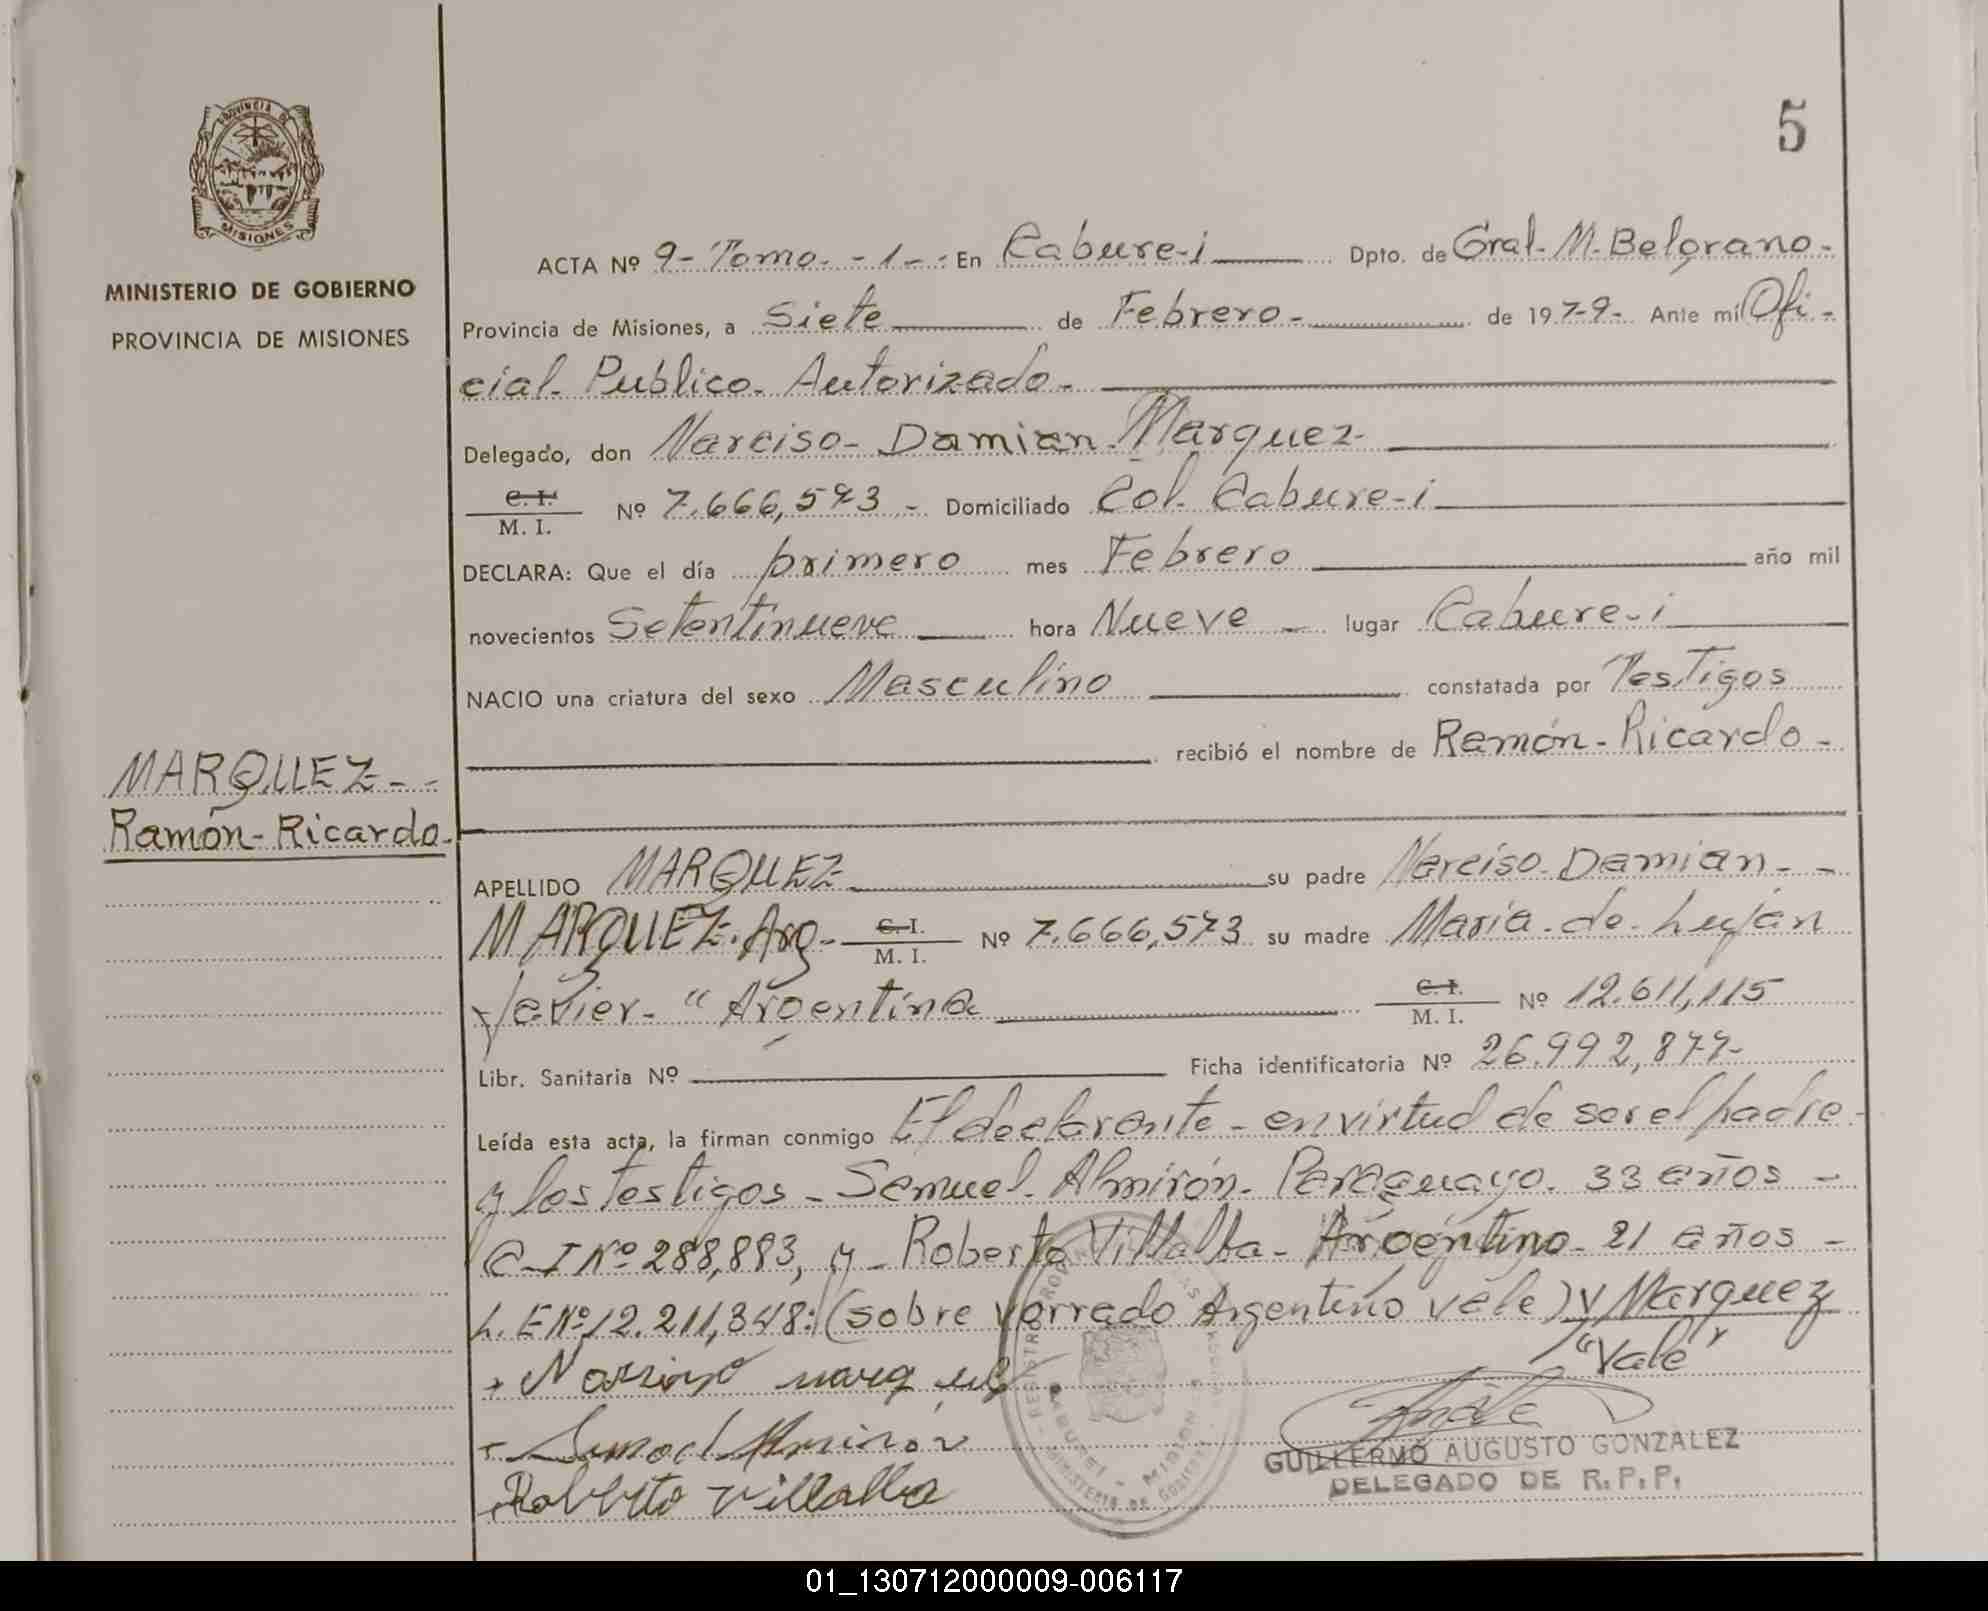 5
PROVINCIA DE
MISIONES
MINISTERIO DE GOBIERNO
PROVINCIA DE MISIONES
MARQUEZ--
Ramón-Ricardo.
ACTA Nº 9- Tomo. - 1-. En Cabure-i Dpto. de Gral- M- Belgrano-
Provincia de Misiones, a Siete de Febrero- de 1979- Ante mí Ofi-
cial- Publico- Autorizado-
Delegado, don Narciso- Damian- Marquez-
C. I. M. I. Nº 7.666,573- Domiciliado Col. Cabure-i
DECLARA: Que el día primero mes Febrero año mil
novecientos Setentinueve hora Nueve - lugar Cabure-i
NACIO una criatura del sexo Masculino constatada por Testigos
recibió el nombre de Ramón- Ricardo-
APELLIDO MARQUEZ su padre Narciso- Damian--
MARQUEZ. Arg- C. I. M. I. Nº 7.666,573 su madre Maria- de- Luján
Javier- "Argentina C. I. M. I. Nº 12.611,115
Libr. Sanitaria Nº Ficha identificatoria Nº 26.992,877-
Leída esta acta, la firman conmigo El declarante- en virtud de ser el padre-
y los testigos- Samuel- Almirón- Paraguayo. 33 años-
C-I Nº 288,893, y- Roberto Villalba- Argentino- 21 años-
L. E Nº 12.211,348: (sobre vorrado Argentino vale) y Marquez
"Vale"
Samuel Almiron
Roberto Villalba
GUILLERMO AUGUSTO GONZALEZ
DELEGADO DE R.P.P.
01_130712000009-006117